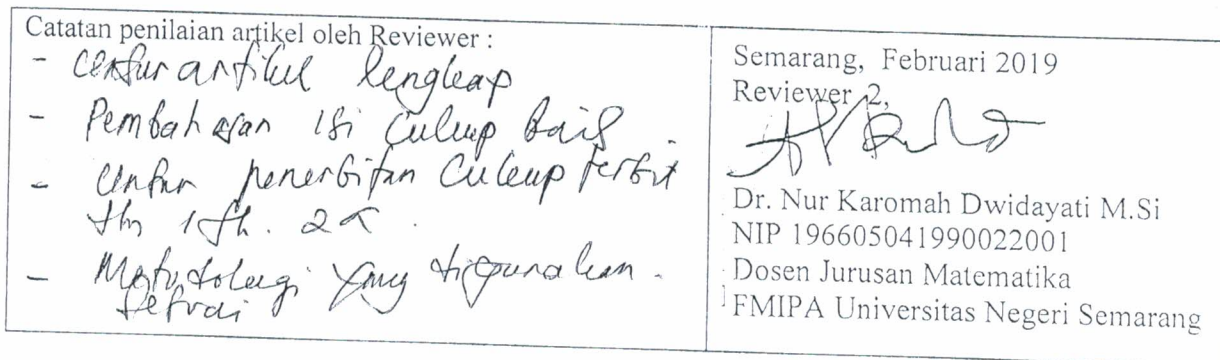 Catatan penilaian artikel oleh Reviewer :
- Unsur artikel lengkap
- Pembahasan isi cukup baik.
- Unsur penerbitan cukup terbit
1 th. 2 x.
- Metodologi yang digunakan.
sesuai
Semarang, Februari 2019
Reviewer 2,
Dr. Nur Karomah Dwidayati M.Si
NIP 196605041990022001
Dosen Jurusan Matematika
FMIPA Universitas Negeri Semarang